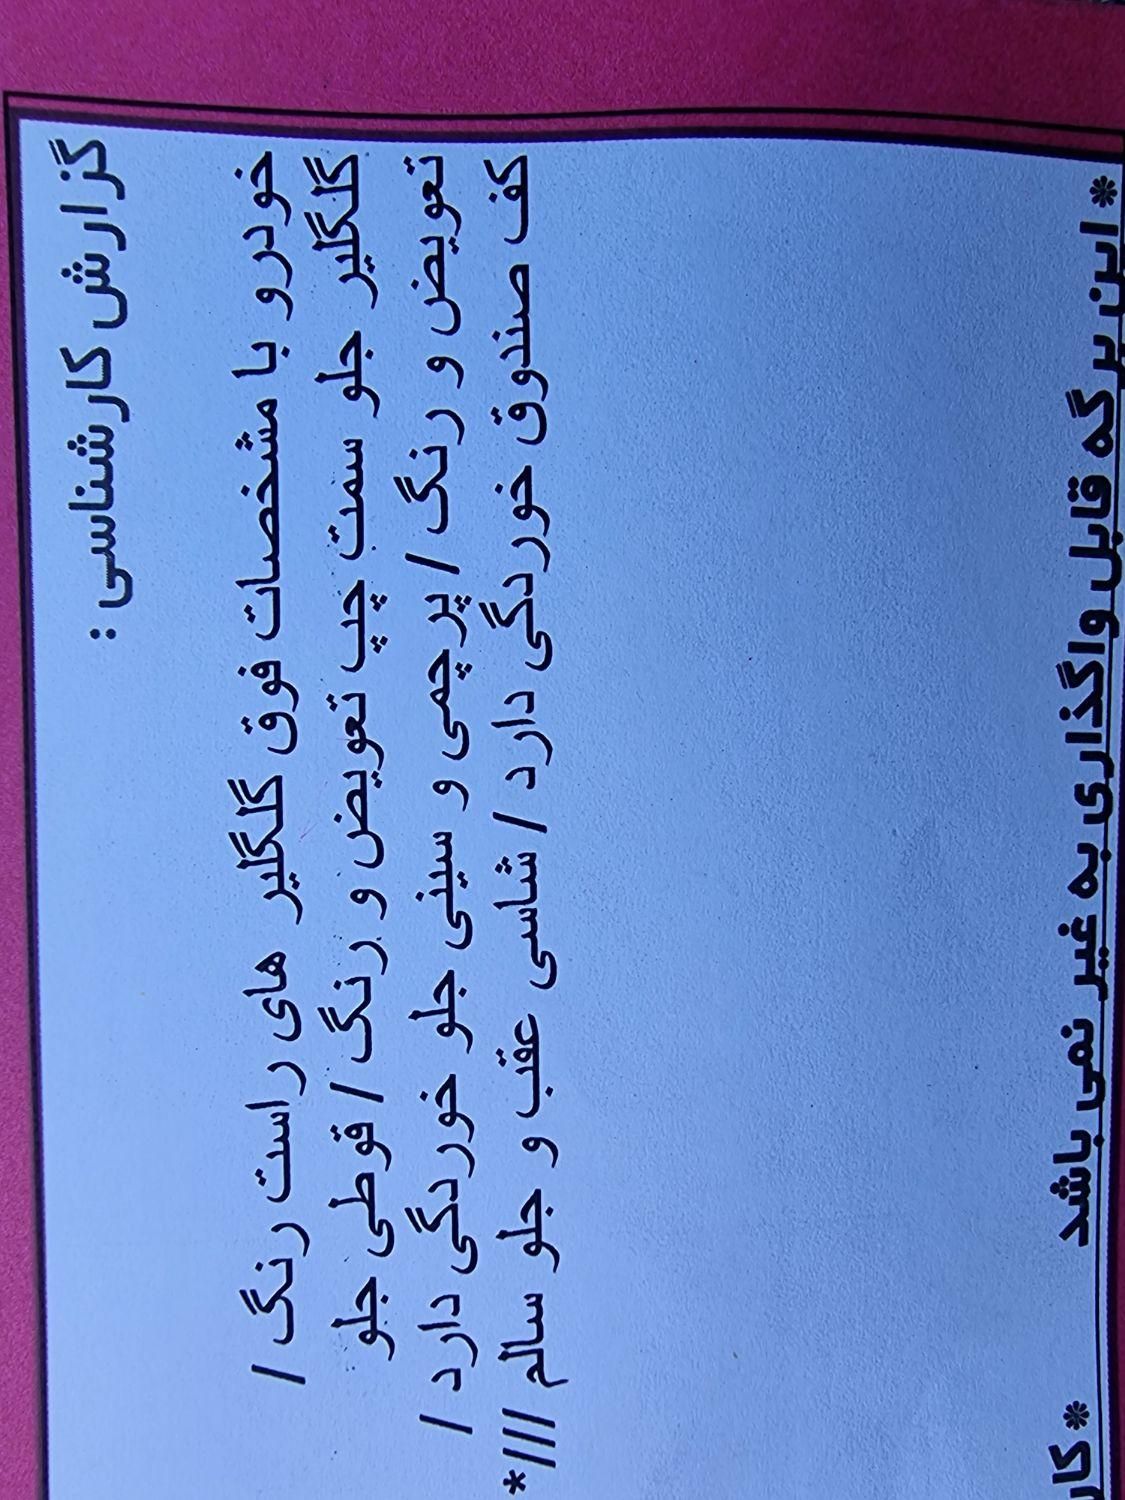 گزارش کارشناسی :
خودرو با مشخصات فوق گلگیر های راست رنگ /
گلگیر جلو سمت چپ تعویض و رنگ / قوطی جلو
تعویض و رنگ / پرچمی و سینی جلو خوردگی دارد /
کف صندوق خوردگی دارد / شاسی عقب و جلو سالم ///*
* این برگه قابل واگذاری به غیر نمی باشد
* کار